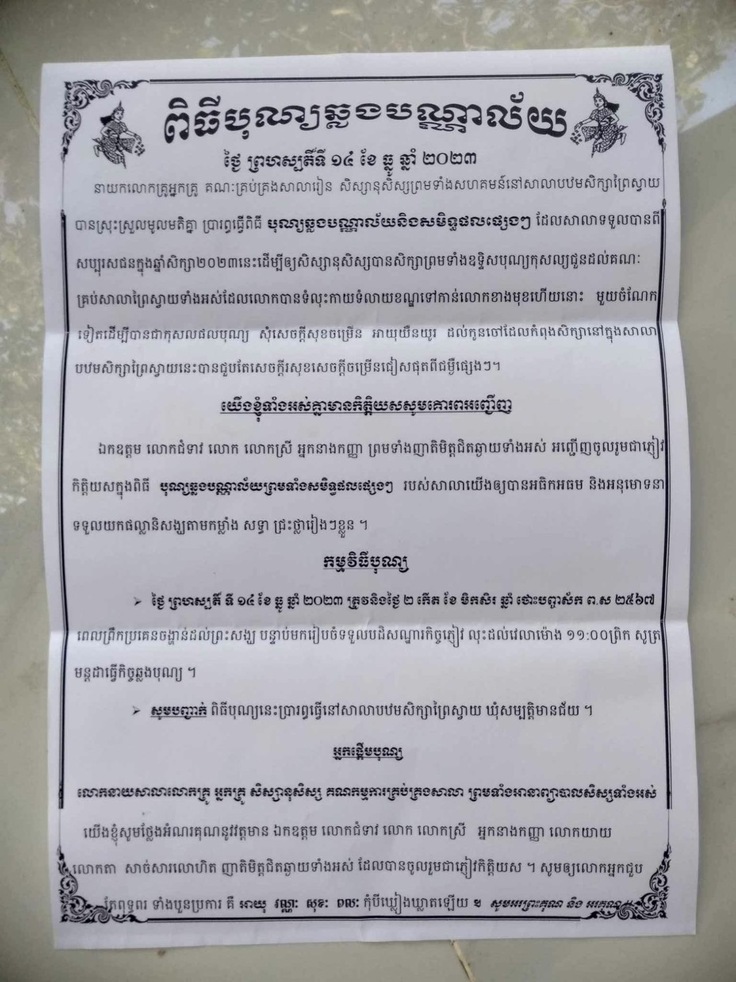 ពិធីបុណ្យឆ្លងបណ្ណាល័យ
ថ្ងៃ ព្រហស្បតិ៍ទី ១៤ ខែ ធ្នូ ឆ្នាំ ២០២៣
នាយកលោកគ្រូអ្នកគ្រូ គណៈគ្រប់គ្រងសាលារៀន សិស្សានុសិស្សព្រមទាំងសហគមន៍នៅសាលាបឋមសិក្សាព្រៃស្វាយ
បានស្រុះស្រួលមូលមតិគ្នា ប្រារព្វធ្វើពិធី បុណ្យឆ្លងបណ្ណាល័យនិងសមិទ្ធផលផ្សេងៗ ដែលសាលាទទួលបានពី
សប្បុរសជនក្នុងឆ្នាំសិក្សា២០២៣នេះដើម្បីឲ្យសិស្សានុសិស្សបានសិក្សាព្រមទាំងឧទ្ទិសបុណ្យកុសល្យជូនដល់គណៈ
គ្រប់សាលាព្រៃស្វាយទាំងអស់ដែលលោកបានទំលុះកាយទំលាយខណ្ឌទៅកាន់លោកខាងមុខហើយនោះ មួយចំណែក
ទៀតដើម្បីបានជាកុសលផលបុណ្យ សុំសេចក្តីសុខចម្រើន អាយុយឺនយូរ ដល់កូនចៅដែលកំពុងសិក្សានៅក្នុងសាលា
បឋមសិក្សាព្រៃស្វាយនេះបានជួបតែសេចក្តីរសុខសេចក្តីចម្រើនជៀសផុតពីជម្ងឺផ្សេងៗ។
យើងខ្ញុំទាំងអស់គ្នាមានកិត្តិយសសូមគោរពអញ្ជើញ
ឯកឧត្តម លោកជំទាវ លោក លោកស្រី អ្នកនាងកញ្ញា ព្រមទាំងញាតិមិត្តជិតឆ្ងាយទាំងអស់ អញ្ជើញចូលរួមជាភ្ញៀវ
កិត្តិយសក្នុងពិធី បុណ្យឆ្លងបណ្ណាល័យព្រមទាំងសមិទ្ធផលផ្សេងៗ របស់សាលាយើងឲ្យបានអធិកអធម និងអនុមោទនា
ទទួលយកផល្លានិសង្ឃតាមកម្លាំង សទ្ធា ជ្រះថ្លារៀងៗខ្លួន ។
កម្មវិធីបុណ្យ
➢ ថ្ងៃ ព្រហស្បតិ៍ ទី ១៤ ខែ ធ្នូ ឆ្នាំ ២០២៣ ត្រូវនិងថ្ងៃ ២ កើត ខែ មិកសិរ ឆ្នាំ ថោះបញ្ចស័ក ព.ស ២៥៦៧
ពេលព្រឹកប្រគេនចង្ហាន់ដល់ព្រះសង្ឃ បន្ទាប់មករៀបចំទទួលបដិសណ្ឋារកិច្ចភ្ញៀវ លុះដល់វេលាម៉ោង ១១:០០ព្រឹក សូត្រ
មន្តជាធ្វើកិច្ចឆ្លងបុណ្យ ។
➢ សូមបញ្ជាក់ ពិធីបុណ្យនេះប្រារព្វធ្វើនៅសាលាបឋមសិក្សាព្រៃស្វាយ ឃុំសម្បត្តិមានជ័យ ។
អ្នកផ្តើមបុណ្យ
លោកនាយសាលាលោកគ្រូ អ្នកគ្រូ សិស្សានុសិស្ស គណកម្មការគ្រប់គ្រងសាលា ព្រមទាំងអាណាព្យាបាលសិស្សទាំងអស់
យើងខ្ញុំសូមថ្លែងអំណរគុណនូវវត្តមាន ឯកឧត្តម លោកជំទាវ លោក លោកស្រី អ្នកនាងកញ្ញា លោកយាយ
លោកតា សាច់សារលោហិត ញាតិមិត្តជិតឆ្ងាយទាំងអស់ ដែលបានចូលរួមជាភ្ញៀវកិត្តិយស ។ សូមឲ្យលោកអ្នកជួប
តែពុទ្ធពរ ទាំងបួនប្រការ គឺ អាយុ វណ្ណៈ សុខៈ ពលៈ កុំបីឃ្លៀងឃ្លាតឡើយ ៕ សូមអរព្រះគុណ និង អរគុណ